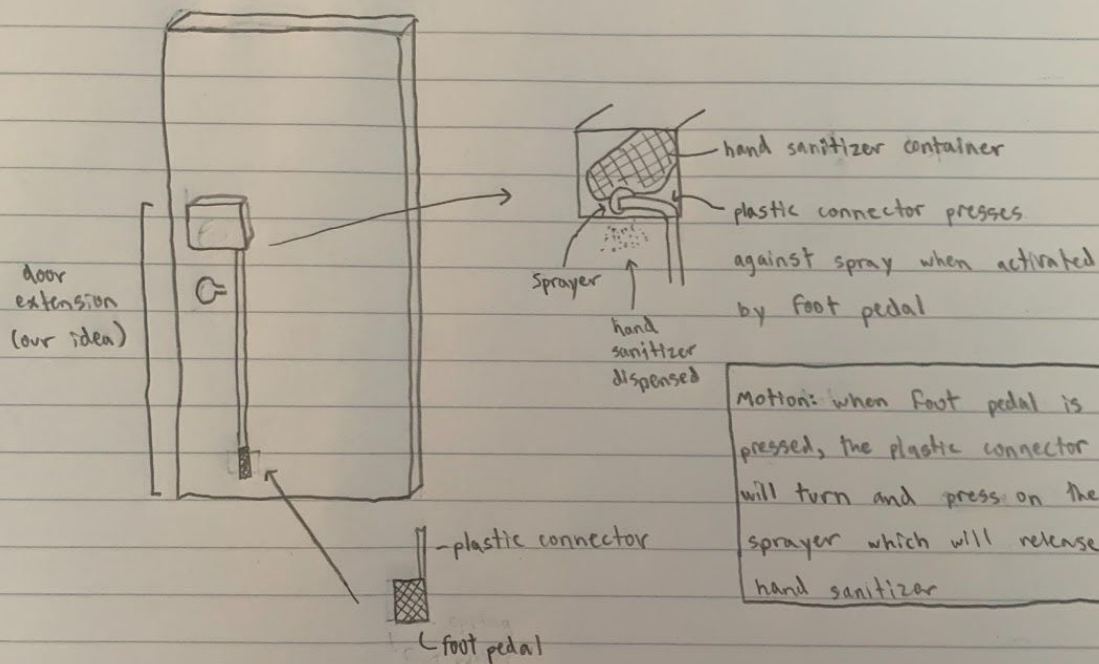 door
extension
(our idea)
hand sanitizer container
plastic connector presses
against spray when activated
by foot pedal
sprayer
hand
sanitizer
dispensed
Motion: when foot pedal is
pressed, the plastic connector
will turn and press on the
sprayer which will release
hand sanitizer
plastic connector
foot pedal